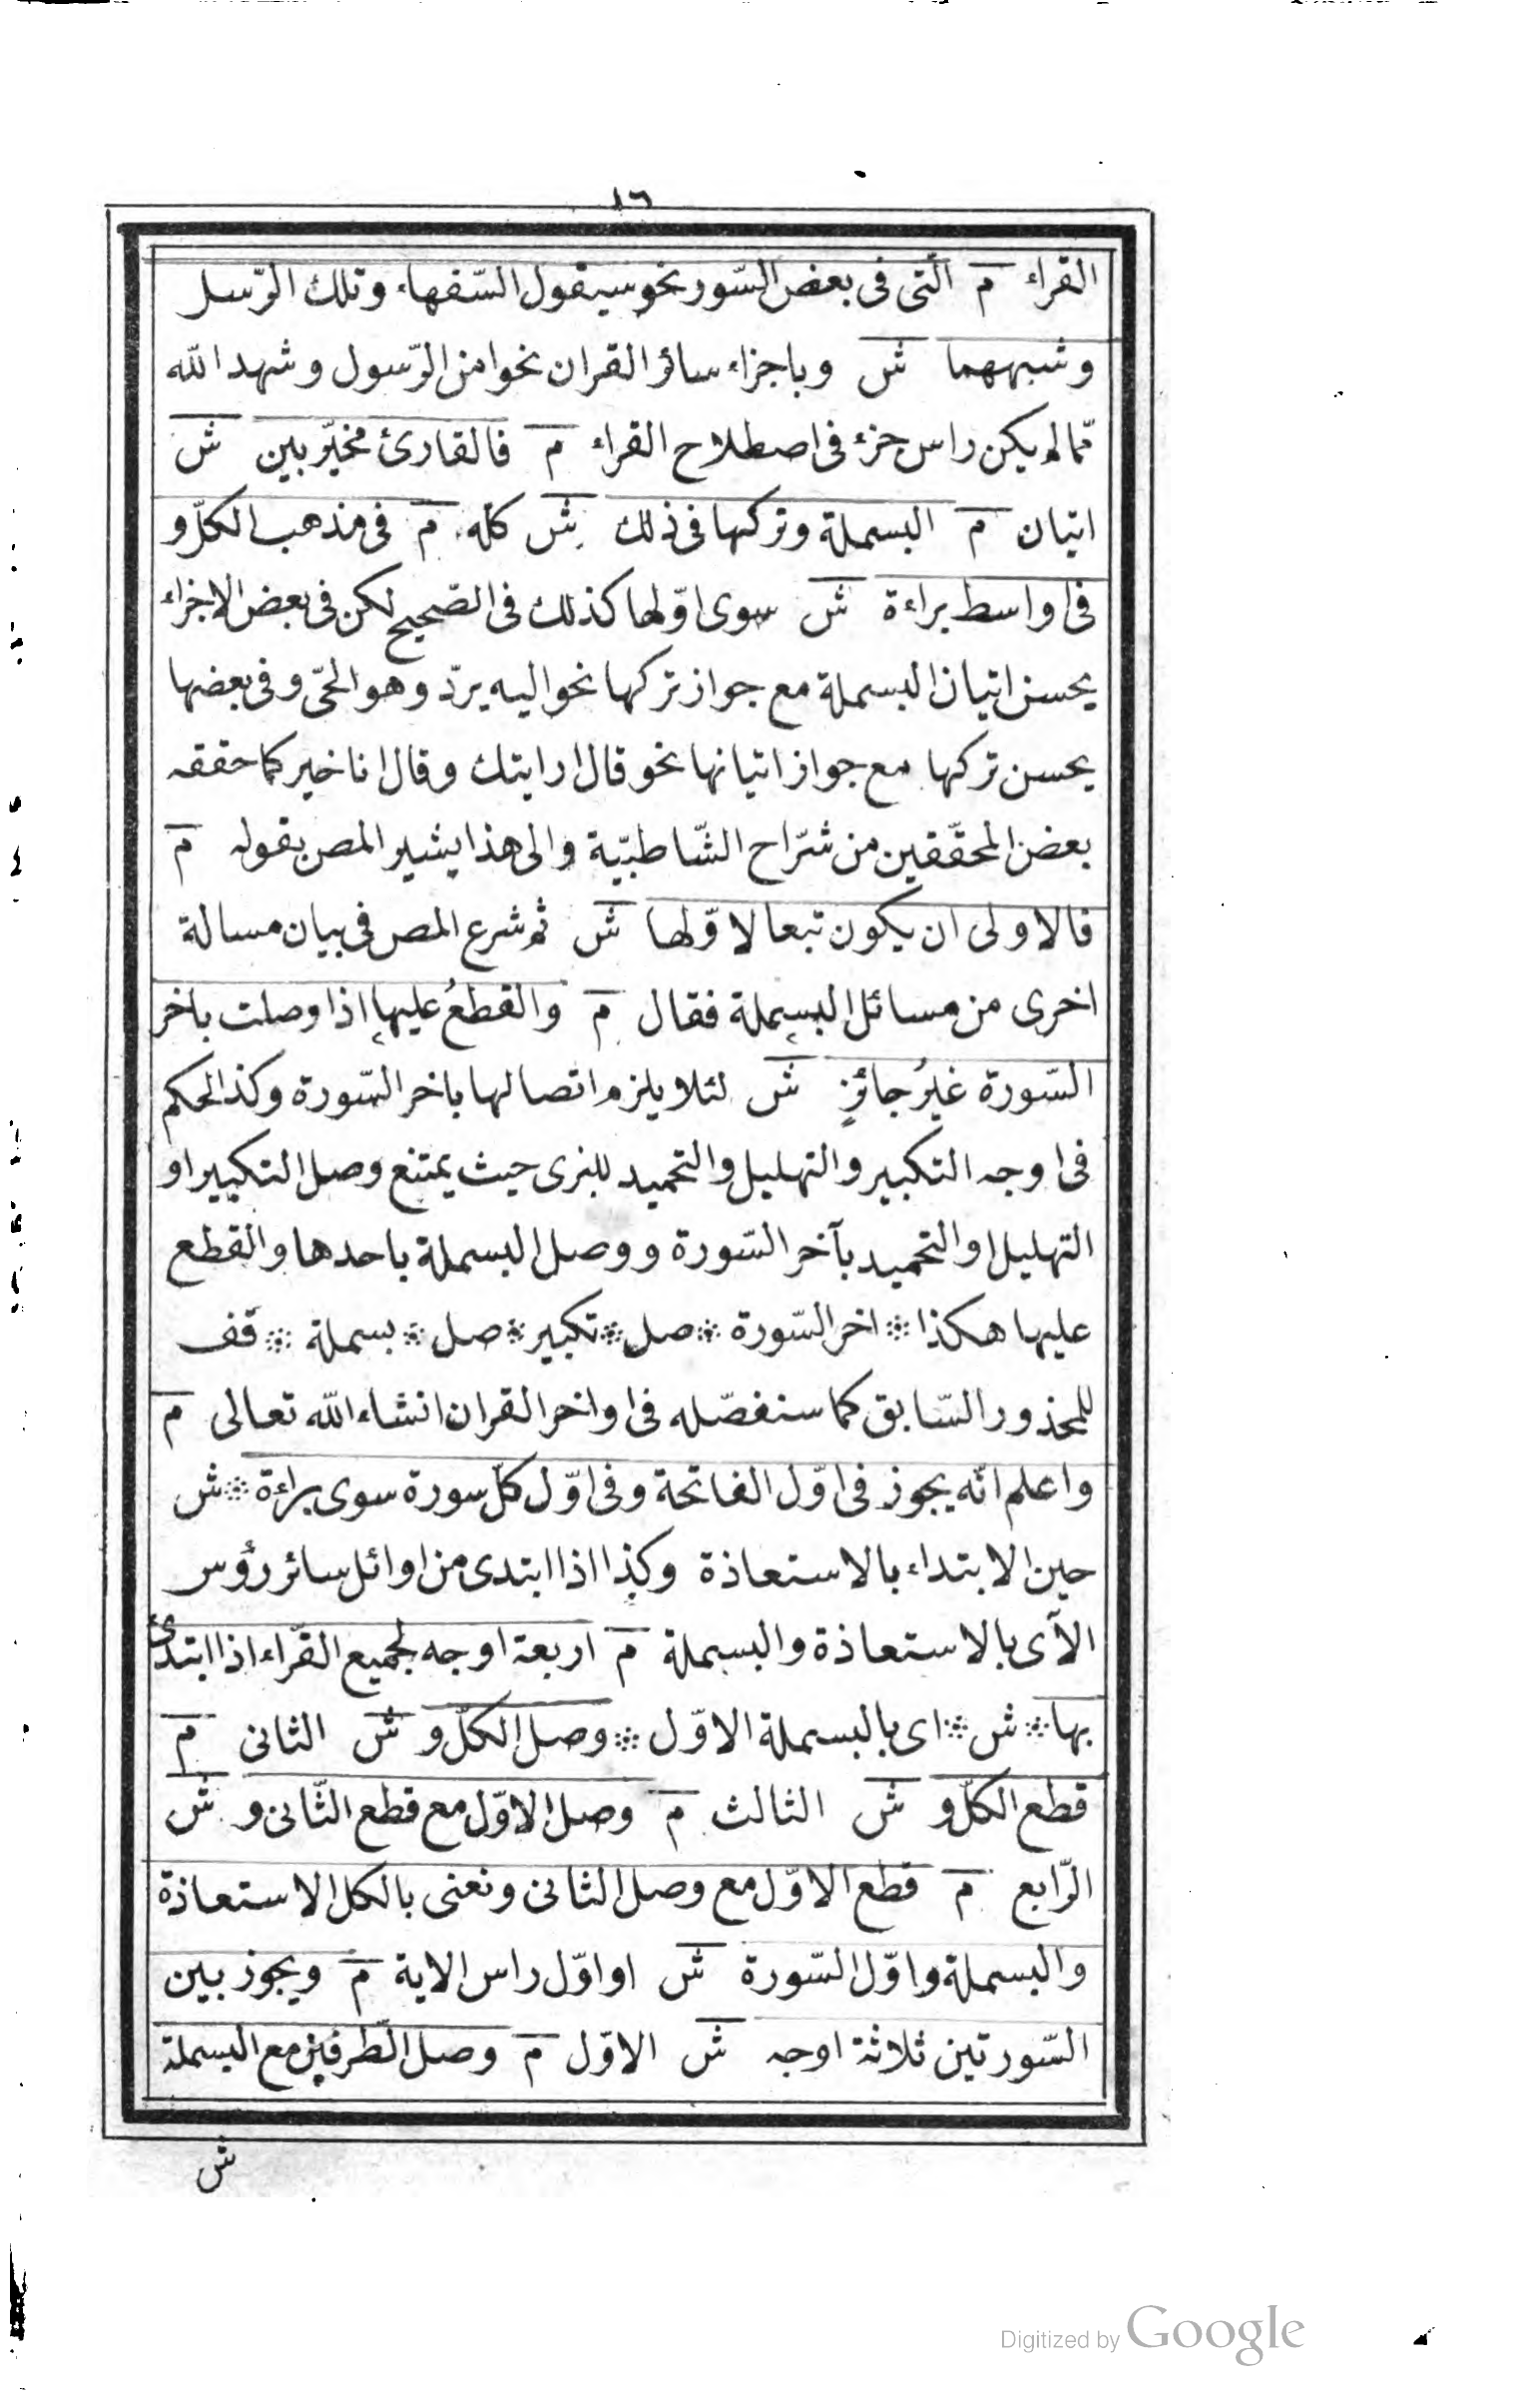 ١٦
القراء م الّتى فى بعض السّور نحو سيقول السّفهاء وتلك الرّسل
وشبههما ش وباجزاء سائر القران نحو امن الرّسول وشهد الله
ممّا لم يكن راس جزء فى اصطلاح القراء م فالقارئ مخيّر بين ش
اتيان م البسملة وتركها فى ذلك ش كله م فى مذهب الكلّ و
فى اواسط براءة ش سوى اوّلها كذلك فى الصّحيح لكن فى بعض الاجزاء
يحسن اتيان البسملة مع جواز تركها نحو اليه يردّ وهو الحىّ وفى بعضها
يحسن تركها مع جواز اتيانها نحو قال ارايتك وقال انا خير كما حققه
بعض المحقّقين من شرّاح الشّاطبيّة والى هذا يشير المص بقوله م
فالاولى ان يكون تبعا لاوّلها ش ثم شرع المص فى بيان مسالة
اخرى من مسائل البسملة فقال م والقطعُ عليها اذا وصلت باخر
السّورة غيرُ جائزٍ ش لئلا يلزم اتصالها باخر السّورة وكذا الحكم
فى اوجه التكبير والتهليل والتحميد للبزى حيث يمتنع وصل التكبير او
التهليل او التحميد بآخر السّورة ووصل البسملة باحدها والقطع
عليها هكذا ܀ اخر السّورة ܀ صل ܀ تكبير ܀ صل ܀ بسملة ܀ قف
للمحذور السّابق كما سنفصّله فى اواخر القران انشاء الله تعالى م
واعلم انّه يجوز فى اوّل الفاتحة وفى اوّل كلّ سورة سوى براءة ܀ ش
حين الابتداء بالاستعاذة وكذا اذا ابتدى من اوائل سائر رؤس
الآى بالاستعاذة والبسملة م اربعة اوجه لجميع القرّاء اذا ابتدئ
بها ܀ ش ܀ اى بالبسملة الاوّل ܀ وصل الكلّ و ش الثانى م
قطع الكلّ و ش الثالث م وصل الاوّل مع قطع الثّانى و ش
الرّابع م قطع الاوّل مع وصل الثانى ونعنى بالكل الاستعاذة
والبسملة واوّل السّورة ش او اوّل راس الاية م ويجوز بين
السّورتين ثلاثة اوجه ش الاوّل م وصل الطّرفين مع البسملة
ش
Digitized by Google